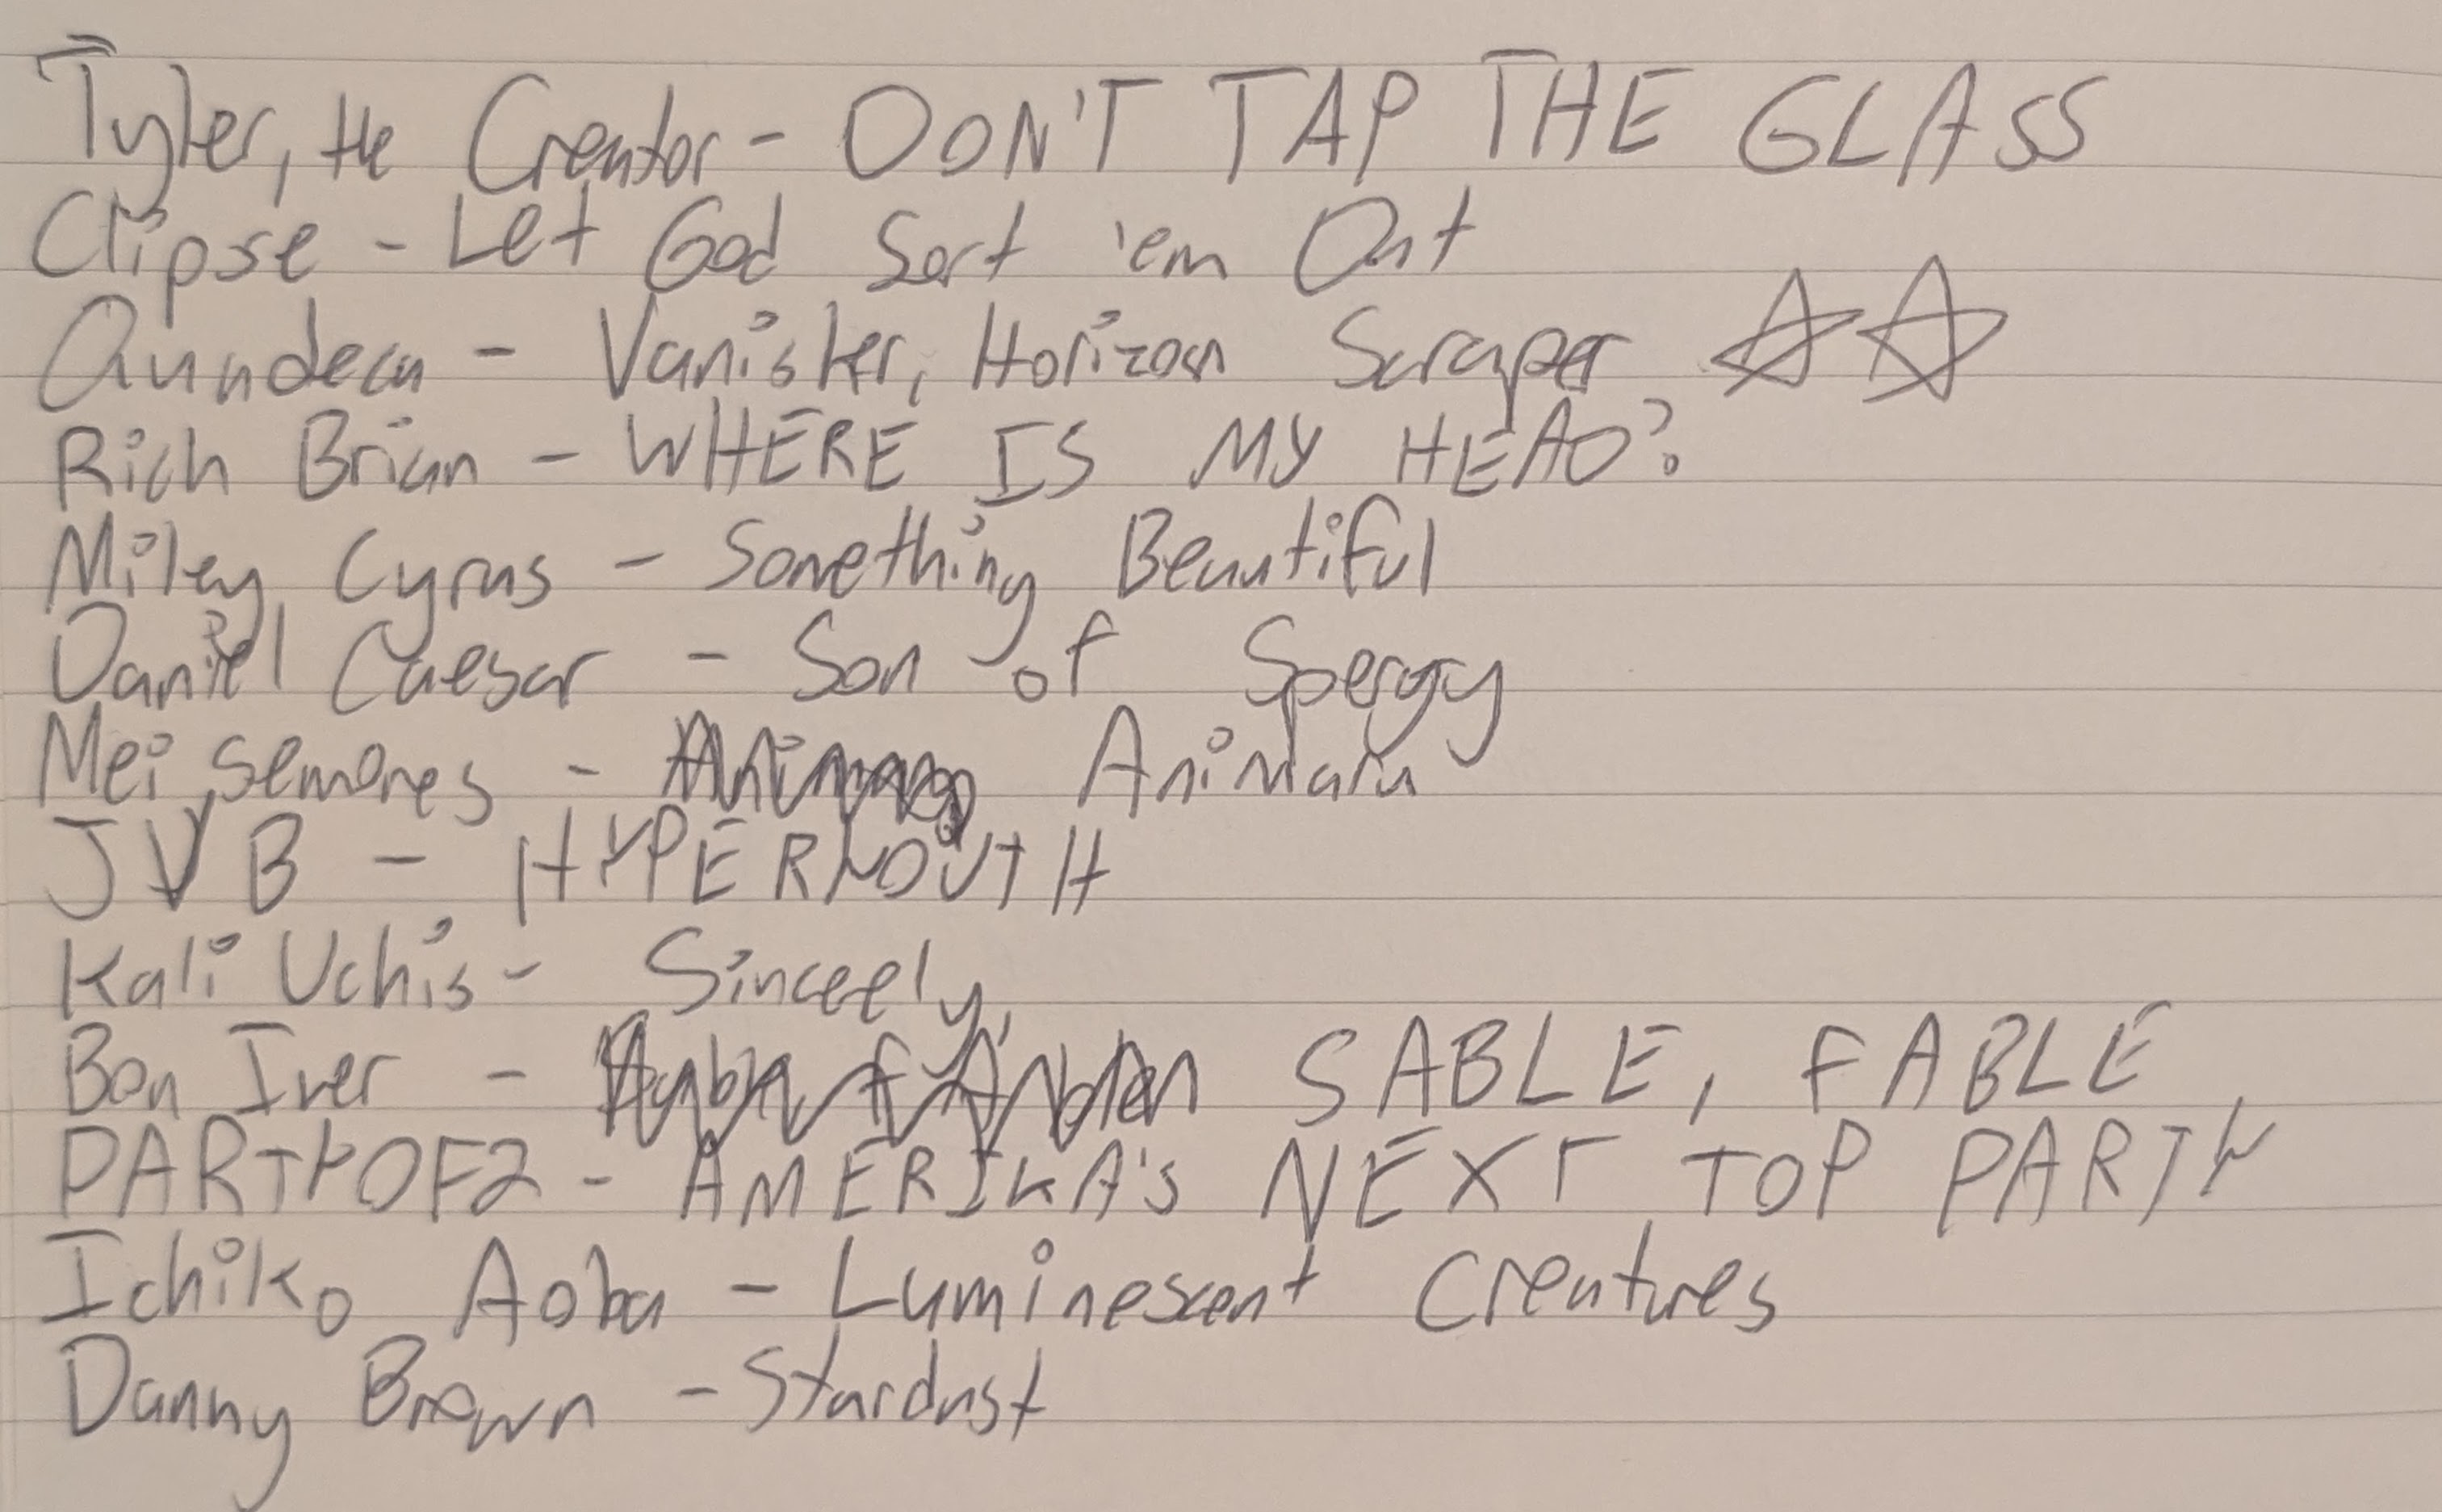 Tyler, the Creator - DON'T TAP THE GLASS
Clipse - Let God Sort 'em Out
Quadeca - Vanisher, Horizon Scraper ☆☆
Rich Brian - WHERE IS MY HEAD?
Miley Cyrus - Something Beautiful
Daniel Caesar - Son of Spergy
Mei semones - Animaru
JVB - HYPERYOUTH
Kali Uchis - Sinceely,
Bon Iver - SABLE, FABLE
PARTYOF2 - AMERIKA'S NEXT TOP PARTY
Ichiko Aoba - Luminescent Creatures
Danny Brown - Stardust